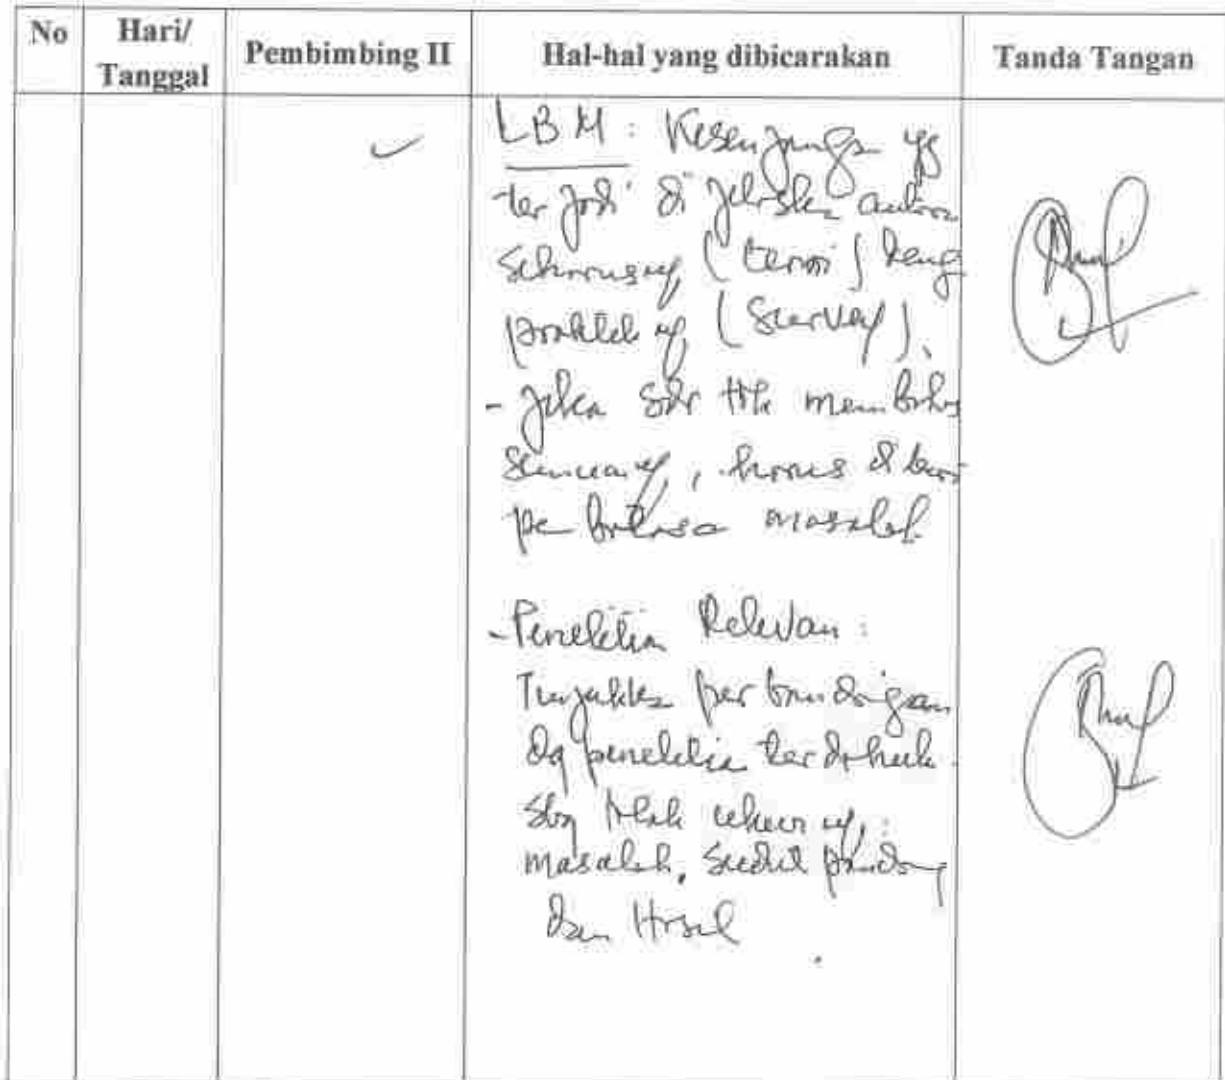 No Hari/ Tanggal Pembimbing II Hal-hal yang dibicarakan Tanda Tangan
LBM : Kesenjangan yg
terjadi di jelaskan antara
seharusny (teori) deng
praktek ny (Survey).
- Jika sdr tdk membahas
semuany, harus di beri
pe batasa masalah
- Penelitian Relevan :
Tunjukkan perbandingan
dg penelitia terdahulu
sbg tolak ukur ny :
masalah, sudut pandang
dan Hasil